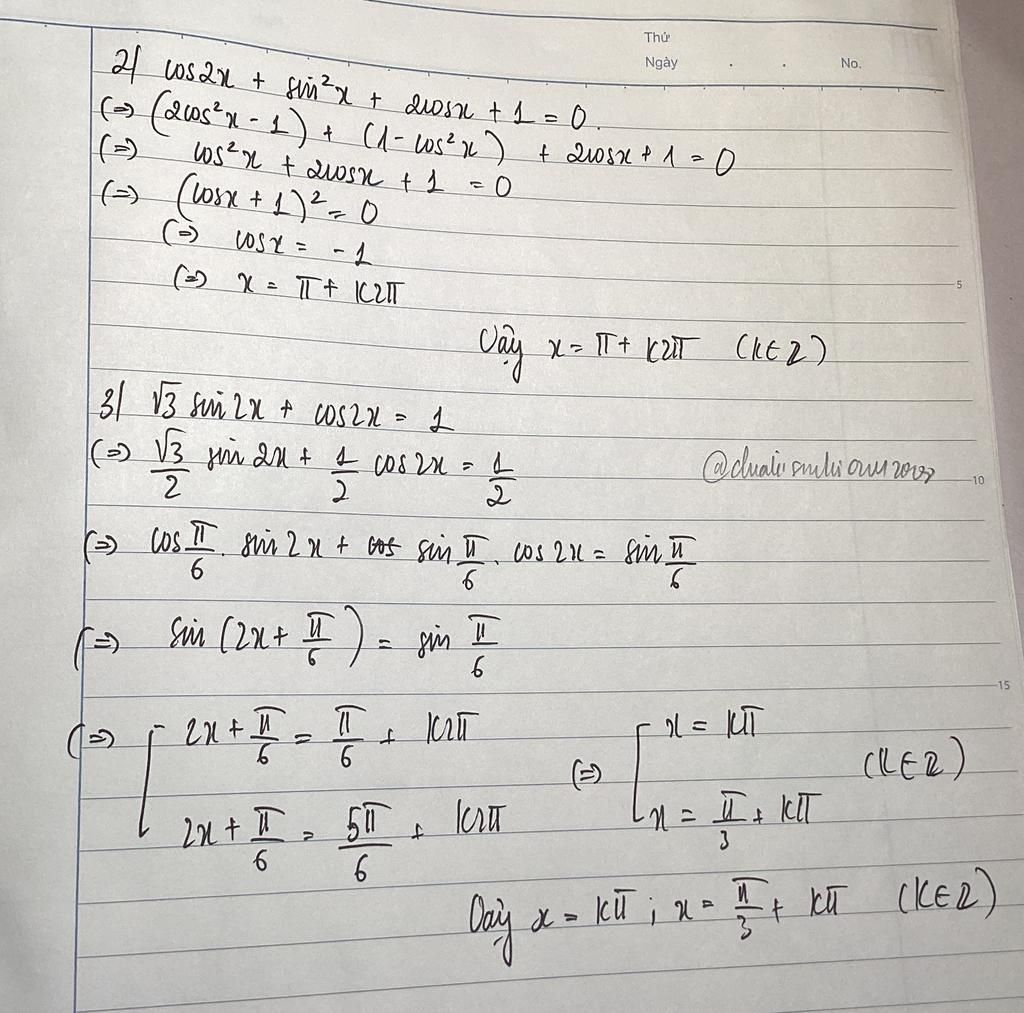 Thứ
Ngày . . No.
2/ cos2x + sin²x + 2cosx + 1 = 0.
(=) (2cos²x - 1) + (1 - cos²x) + 2cosx + 1 = 0
(=) cos²x + 2cosx + 1 = 0
(=) (cosx + 1)² = 0
(=) cosx = -1
(=) x = π + k2π
5
Vậy x = π + k2π (k∈Z)
3/ √3 sin2x + cos2x = 1
(=) √3/2 sin2x + 1/2 cos2x = 1/2
10
(=) cos π/6 . sin2x + cos sin π/6 . cos2x = sin π/6
(=) sin (2x + π/6) = sin π/6
15
(=) [ 2x + π/6 = π/6 + k2π (=) [ x = kπ (k∈Z)
2x + π/6 = 5π/6 + k2π x = π/3 + kπ
Vậy x = kπ ; x = π/3 + kπ (k∈Z)